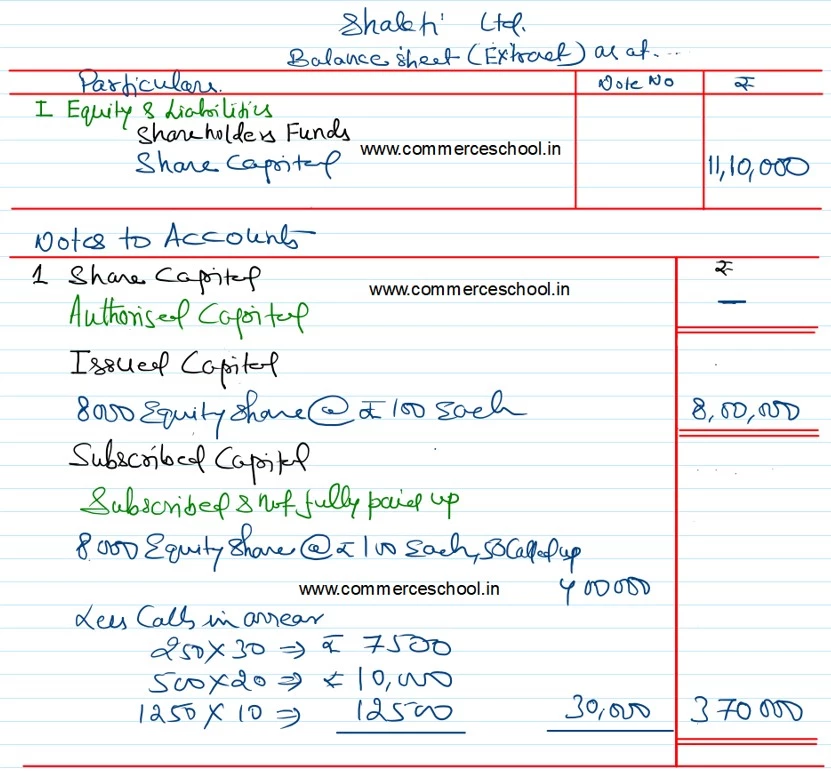 Shakti Ltd.
Balance sheet (Extract) as at....
Particulars. Note No ₹
I Equity & Liabilities
Shareholders Funds
www.commerceschool.in
Share Capital 11,10,000
Notes to Accounts
1 Share Capital ₹
www.commerceschool.in
Authorised Capital —
Issued Capital
8000 Equity Share @ ₹ 100 Each 8,00,000
Subscribed Capital
Subscribed & not fully paid up
8000 Equity Share @ ₹ 100 Each, 50 Called up
www.commerceschool.in 400000
Less Calls in arrear
250 X 30 ⇒ ₹ 7500
500 X 20 ⇒ ₹ 10,000
1250 X 10 ⇒ 12500 30,000 370000